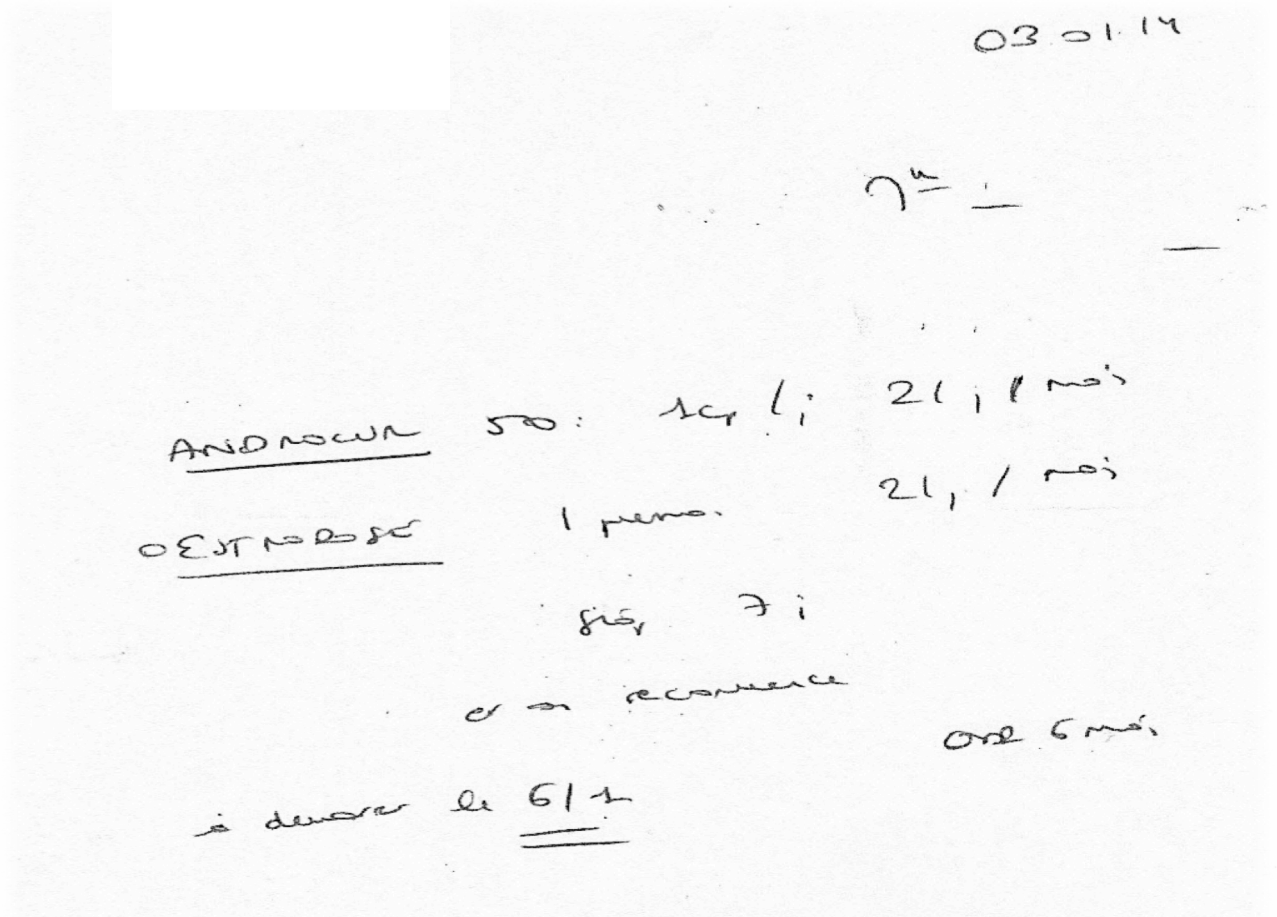 03.01.14
Mme
ANDROCUR 50: 1cp /j 21 j / mois
OESTRODOSE 1 press. 21 j / mois
stop 7 j
et on recommence
ORD 6 mois
à démarrer le 6/1